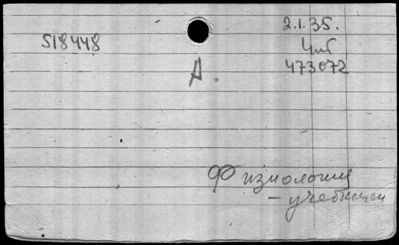 2.1.35.
518448
Чит
473072
А.
Физиология
- учебники